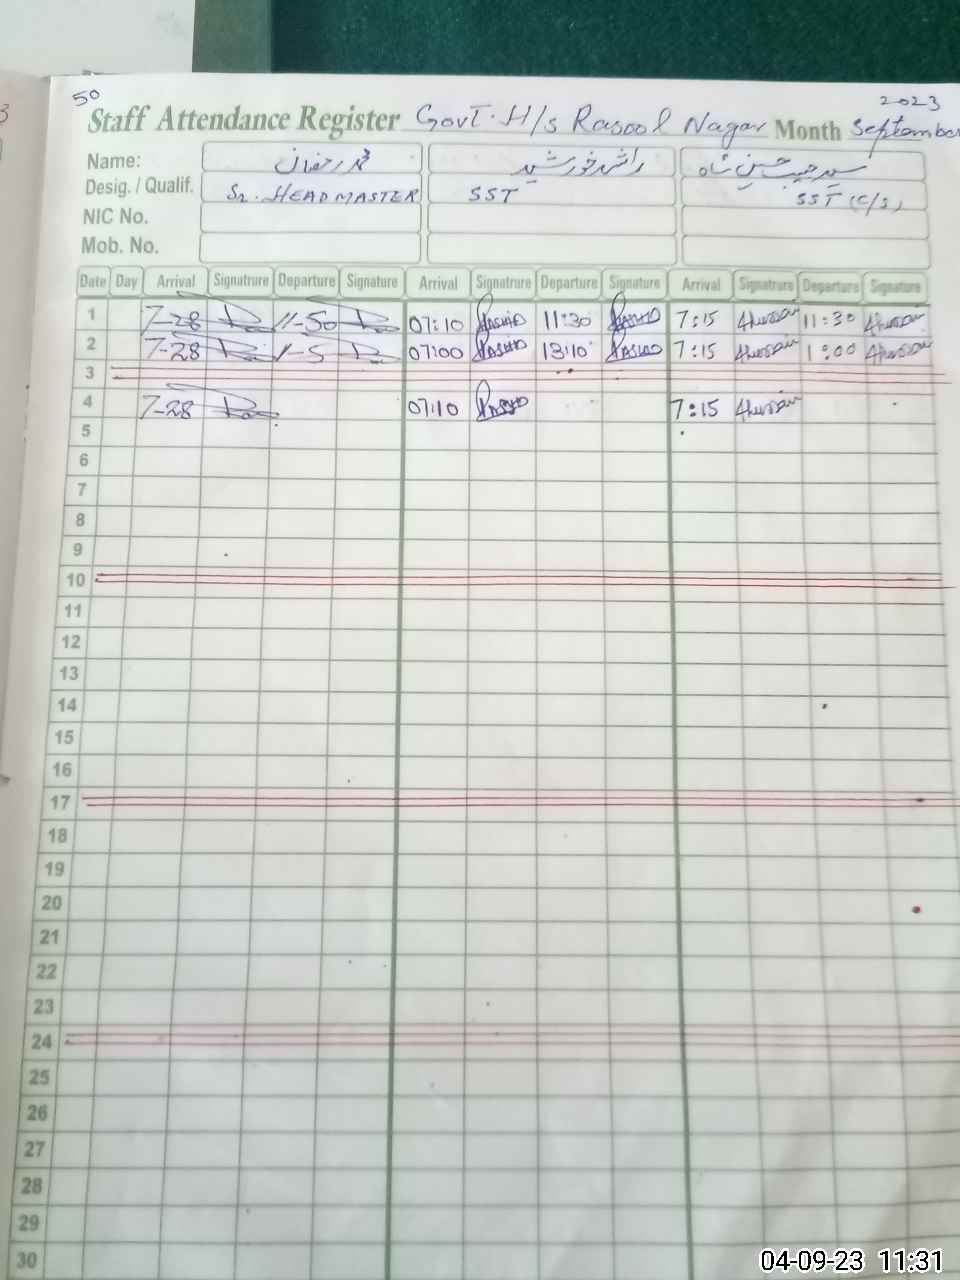 50
2023
Staff Attendance Register Govt. H/s Rasool Nagar Month September
Name: محمد رمضان راشد خورشید سید حبیب حسین شاہ
Desig. / Qualif. Sr. HEADMASTER SST SST (C/S)
NIC No.
Mob. No.
Date Day Arrival Signatrure Departure Signature Arrival Signatrure Departure Signature Arrival Signatrure Departure Signature
1 7-28 11-50 07:10 RASHID 11:30 RASHID 7:15 Ahussain 11:30 Ahussain
2 7-28 1-5 07:00 RASHID 13:10 RASHID 7:15 Ahussain 1:00 Ahussain
3
4 7-28 07:10 RASHID 7:15 Ahussain
5
6
7
8
9
10
11
12
13
14
15
16
17
18
19
20
21
22
23
24
25
26
27
28
29
30
04-09-23 11:31